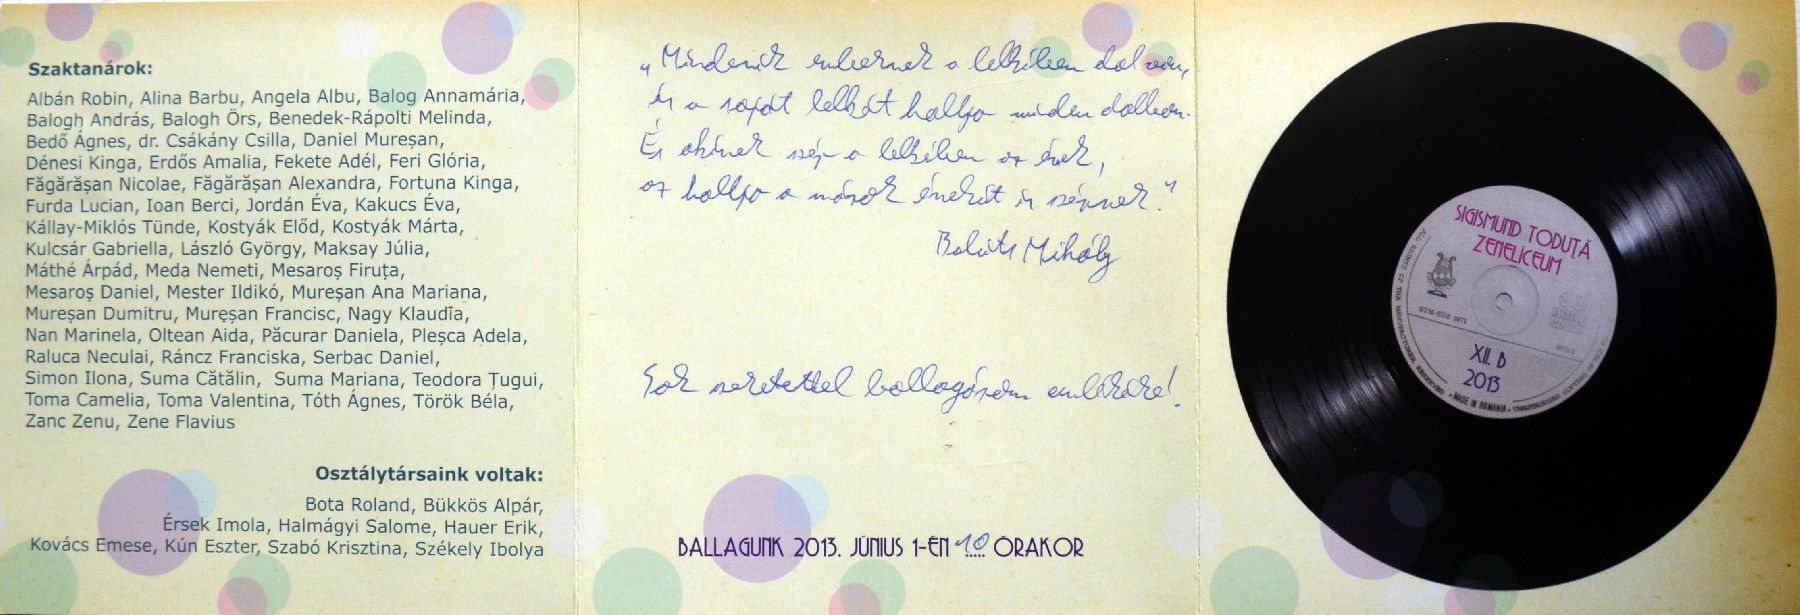 Szaktanárok:
Albán Robin, Alina Barbu, Angela Albu, Balog Annamária,
Balogh András, Balogh Örs, Benedek-Rápolti Melinda,
Bedő Ágnes, dr. Csákány Csilla, Daniel Mureșan,
Dénesi Kinga, Erdős Amalia, Fekete Adél, Feri Glória,
Făgărășan Nicolae, Făgărășan Alexandra, Fortuna Kinga,
Furda Lucian, Ioan Berci, Jordán Éva, Kakucs Éva,
Kállay-Miklós Tünde, Kostyák Előd, Kostyák Márta,
Kulcsár Gabriella, László György, Maksay Júlia,
Máthé Árpád, Meda Nemeti, Mesaroș Firuța,
Mesaroș Daniel, Mester Ildikó, Mureșan Ana Mariana,
Mureșan Dumitru, Mureșan Francisc, Nagy Klaudia,
Nan Marinela, Oltean Aida, Păcurar Daniela, Pleșca Adela,
Raluca Neculai, Ráncz Franciska, Serbac Daniel,
Simon Ilona, Suma Cătălin, Suma Mariana, Teodora Țugui,
Toma Camelia, Toma Valentina, Tóth Ágnes, Török Béla,
Zanc Zenu, Zene Flavius
Osztálytársaink voltak:
Bota Roland, Bükkös Alpár,
Érsek Imola, Halmágyi Salome, Hauer Erik,
Kovács Emese, Kún Eszter, Szabó Krisztina, Székely Ibolya
„Mindenik embernek a lelkében dal van,
és a saját lelkét hallja minden dalban.
És akinek szép a lelkében az ének,
az hallja a mások énekét is szépnek."
Babits Mihály
Sok szeretettel ballagásom emlékére!
BALLAGUNK 2013. JÚNIUS 1-ÉN 10 ÓRAKOR
SIGISMUND TODUȚĂ
ZENELÍCEUM
STM-EDE 0871
XII. B
2013
MADE IN ROMANIA